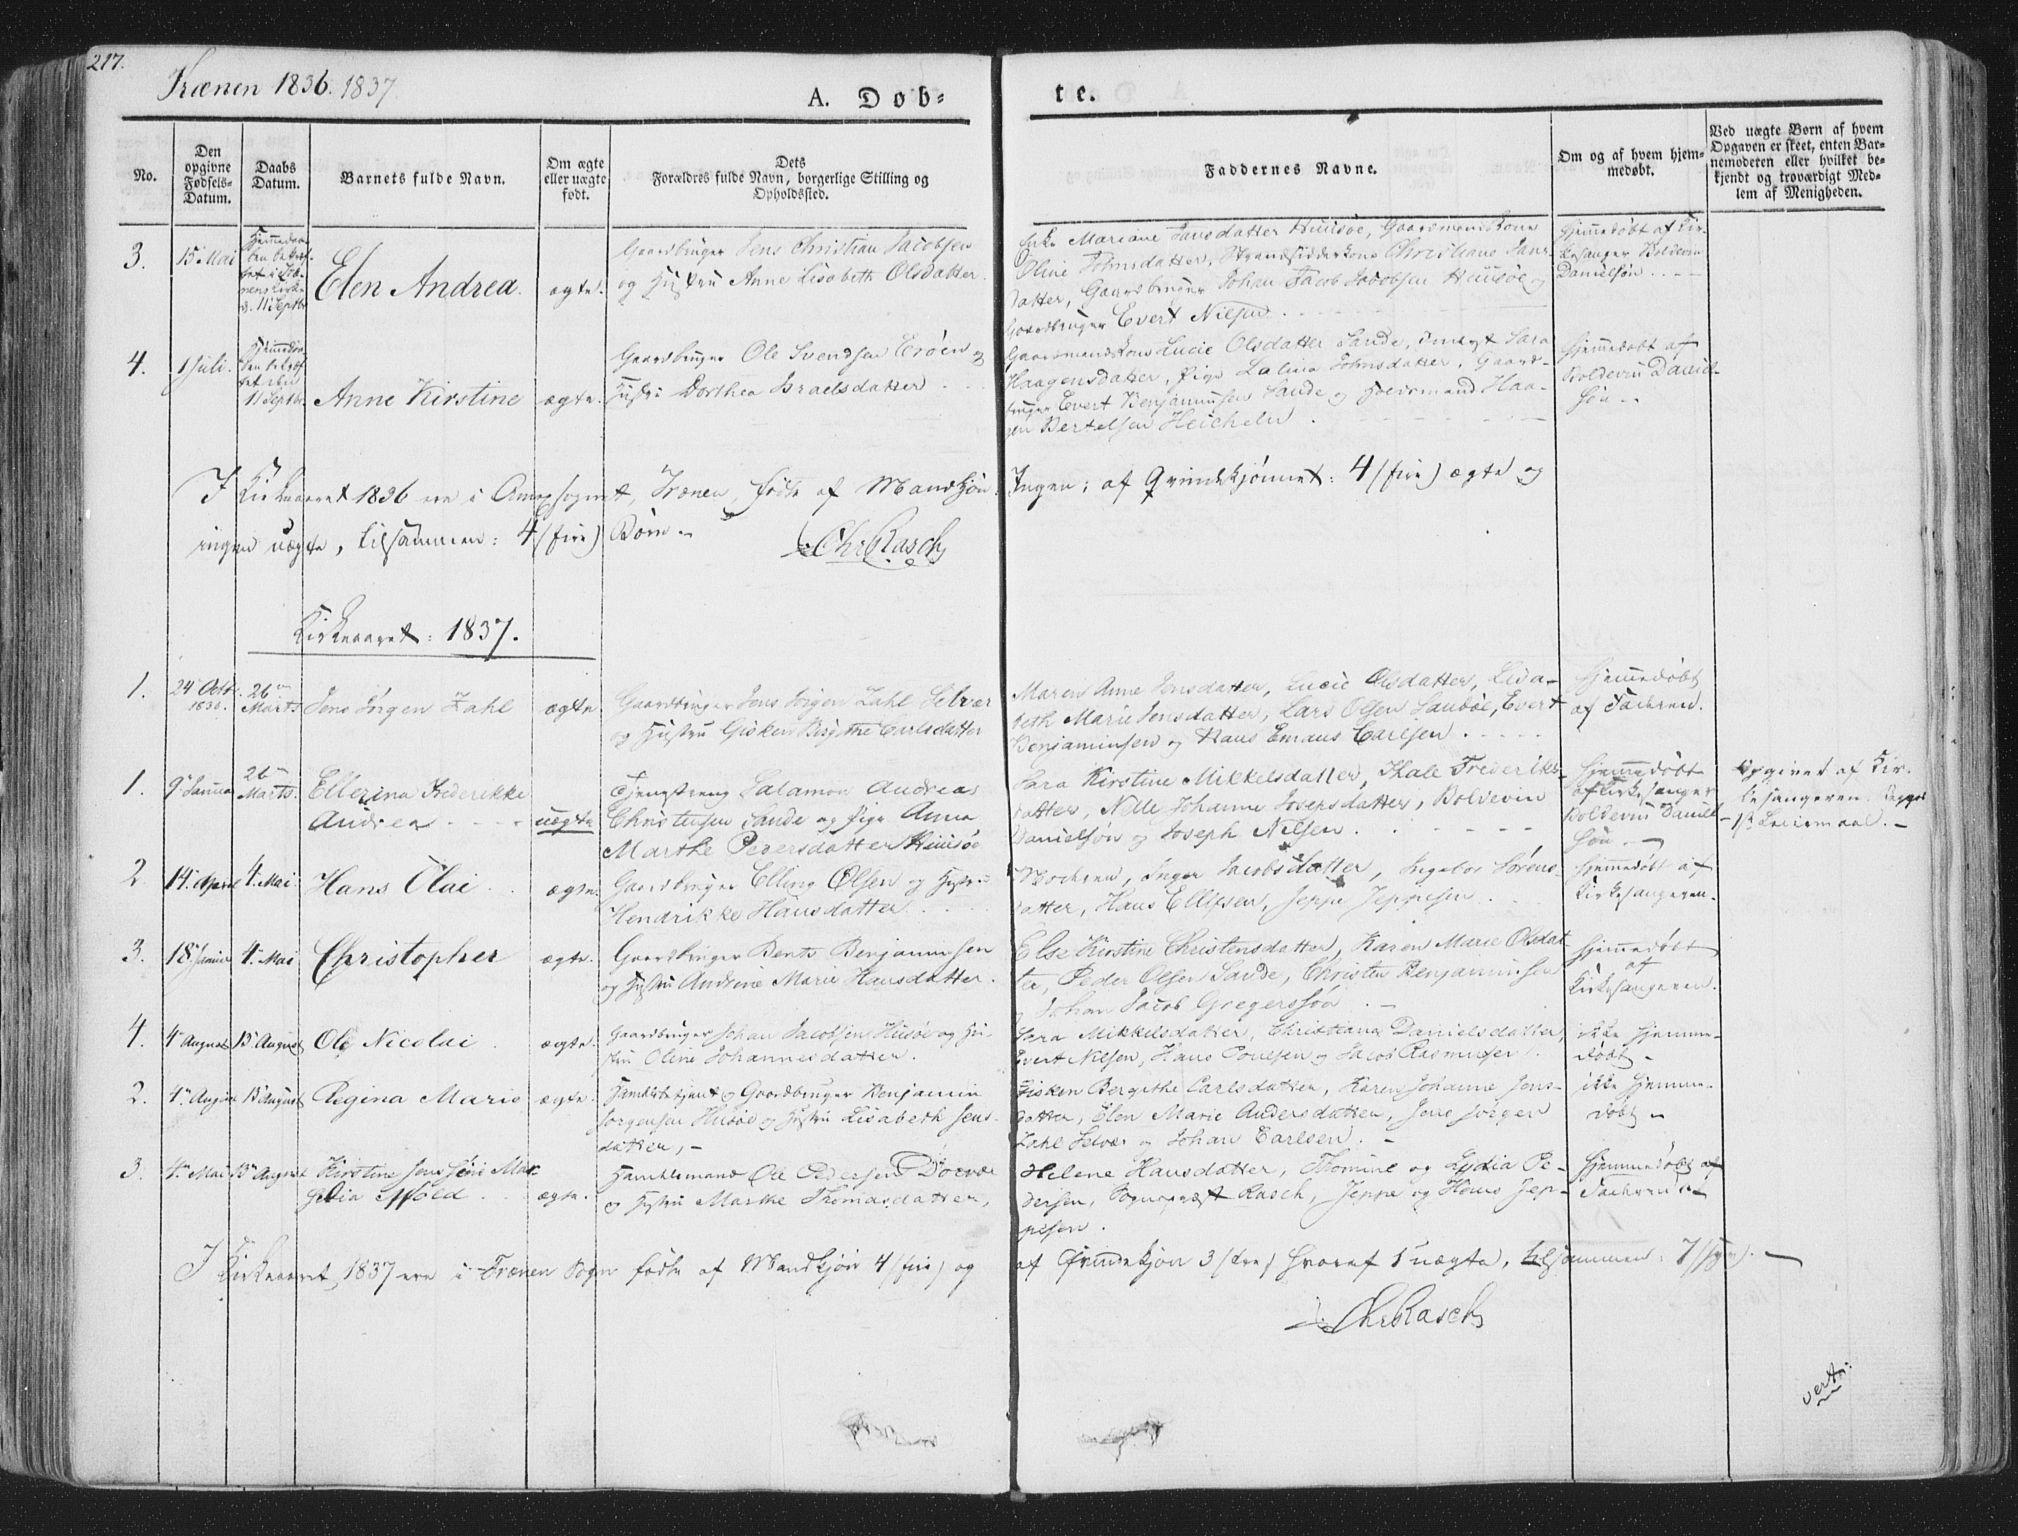 217.
Trænen 1836. 1837.
A. Døb=
te.
No.
Den opgivne Fødsels-Datum.
Daabs Datum.
Barnets fulde Navn.
Om ægte eller uægte født.
Dets Forældres fulde Navn, borgerlige Stilling og Opholdssted.
Faddernes Navne.
Om og af hvem hjemmedøbt.
Ved uægte Børn af hvem Opgaven er skeet, enten Barnemoderen eller hvilket bekjendt og troværdigt Medlem af Menigheden.
3.
15 Mai
11 Septbr
Elen Andrea.
ægte.
Gaardbruger Jens Christian Jacobsen
og Hustru Anne Lisabeth Olsdatter.
Enke Mariane Jansdatter Huusøe, Gaardmandskone
Oline Johnsdatter, Strandsidderkone Christiane Jans-
datter, Gaardbruger Johan Jacob Jacobsen Huusøe og
Gaardbruger Evert Nilsen.
Hjemmedøbt af Kir-
kesanger Boldevin
Danielsøn.
4.
1 Juli.
11 Septbr.
Anne Kirstine
ægte.
Gaardbruger Ole Svendsen og
Hustru Dorthea Israelsdatter
Gaardmandskone Lucie Olsdatter Sande, Sara
Haagensdatter, Pige Johnsdatter, Gaard-
bruger Evert Benjaminsen Sande og Haa-
gen Bertelsen
Hjemmedøbt af
Boldevin Daniel-
søn
I Kirkeaaret 1836 ere i Annexsognet, Trænen, fødte af Mandkjøn: Ingen; af Qvindekjønnet: 4 (fire) ægte og
ingen uægte, tilsammen: 4 (fire) Børn.
Chr. Rasch
Kirkeaaret: 1837.
1.
24 Octb. 1836.
26 Marts
Jens Jørgen Zahl
ægte
Gaardbruger Jens Jørgen Zahl Selvær
og Hustru Gisken Birgithe Carlsdatter
Maren Anne Jensdatter, Lucie Olsdatter, Lisa-
beth Marie Jensdatter, Lars Olsen Sandøe, Evert
Benjaminsen og Hans Emaus Carlsen.
Hjemmedøbt
af Faderen.
1.
9 Januar
26 Marts.
Ellerina Frederikke
Andrea
uægte
Tjenestdreng Salamon Andreas
Christensen Sande og Pige Anna
Marthe Pedersdatter Huusøe
Sara Kirstine Mikkelsdatter, Frederiks-
datter, Nille Johanne Iversdatter, Boldevin
Danielsøn og Joseph Nilsen.
Hjemmedøbt
af Kirkesanger
Boldevin Daniel-
søn
Opgivet af Kir-
kesangeren. Begges
1ste Leiermaal.
2.
14 April
4 Mai.
Hans Olai
ægte.
Gaardbruger Elling Olsen og Hustru
Hendrikke Hansdatter
Moderen, Inger Jacobsdatter, Ingebor Sørens-
datter, Hans Ellifsen, Jeppe Jeppesen
Hjemmedøbt af
Kirkesangeren.
3.
18 Januar
4 Mai
Christopher
ægte.
Gaardbruger Bent Benjaminsen
og Hustru Andrine Marie Hansdatter.
Else Kirstine Christensdatter, Karen Marie Olsdat-
ter, Peder Olsen Sande, Christen Benjaminsen
og Johan Jacob Gregerssøn.
Hjemmedøbt
af
Kirkesangeren.
4.
4 August
13 August
Ole Nicolai
ægte.
Gaardbruger Johan Jacobsen Husøe og Hu-
stru Oline Johannesdatter.
Sara Mikkelsdatter, Christiane Danielsdatter,
Evert Nilsen, Hans Poulsen og Jacob Rasmusen.
ikke hjemme-
døbt
2.
4 August
13 August
Regina Marie
ægte.
og Gaardbruger Benjamin
Jørgensen Husøe og Hustru Lisabeth Jens-
datter,
Gisken Bergithe Carlsdatter, Karen Johanne Jens-
datter, Elen Marie Andersdatter, Jens Jørgen
Zahl Selvær og Johan Carlsen.
ikke hjemme-
døbt
3.
4 Mai
13 August
Kirstine
ægte.
Handelsmand Ole Pedersen
og Hustru Marthe Thomasdatter,
Helene Hansdatter, Thomine og Lydia Pe-
dersen, Sognepræst Rasch, Jeppe og Hans Jep-
pesen.
Hjemmedøbt af
Faderen
I Kirkeaaret 1837 ere i Trænen Sogn fødte af Mandkjøn 4 (fire) og af Qvindekjøn 3 (tre) hvoraf 1 uægte, tilsammen: 7 (syv).
Chr. Rasch
vert: